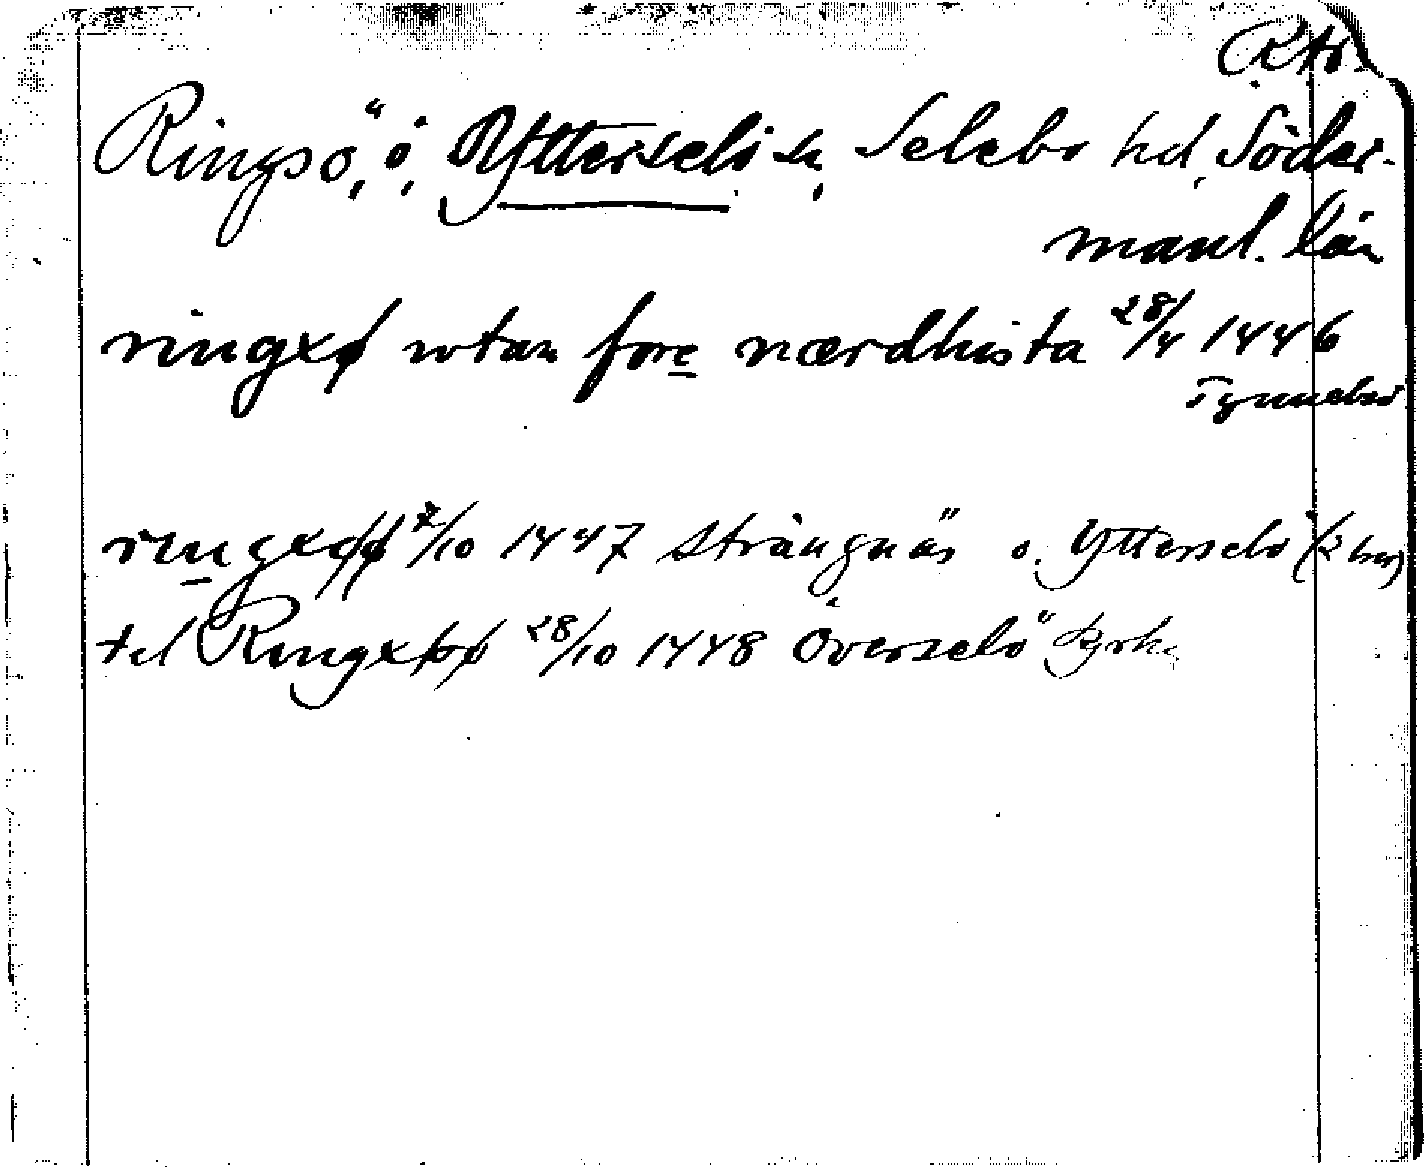 Ringsö, ö, Ytterselö sn, Selebo hd, Söder-
manl. län
ringxø wtan fore nærdhista 28/4 1446
Tynnelsö
ringxøø 7/10 1447 Strängnäs o. Ytterselö (2 brev)
tel Ringxøø 28/10 1448 Överselö kyrka